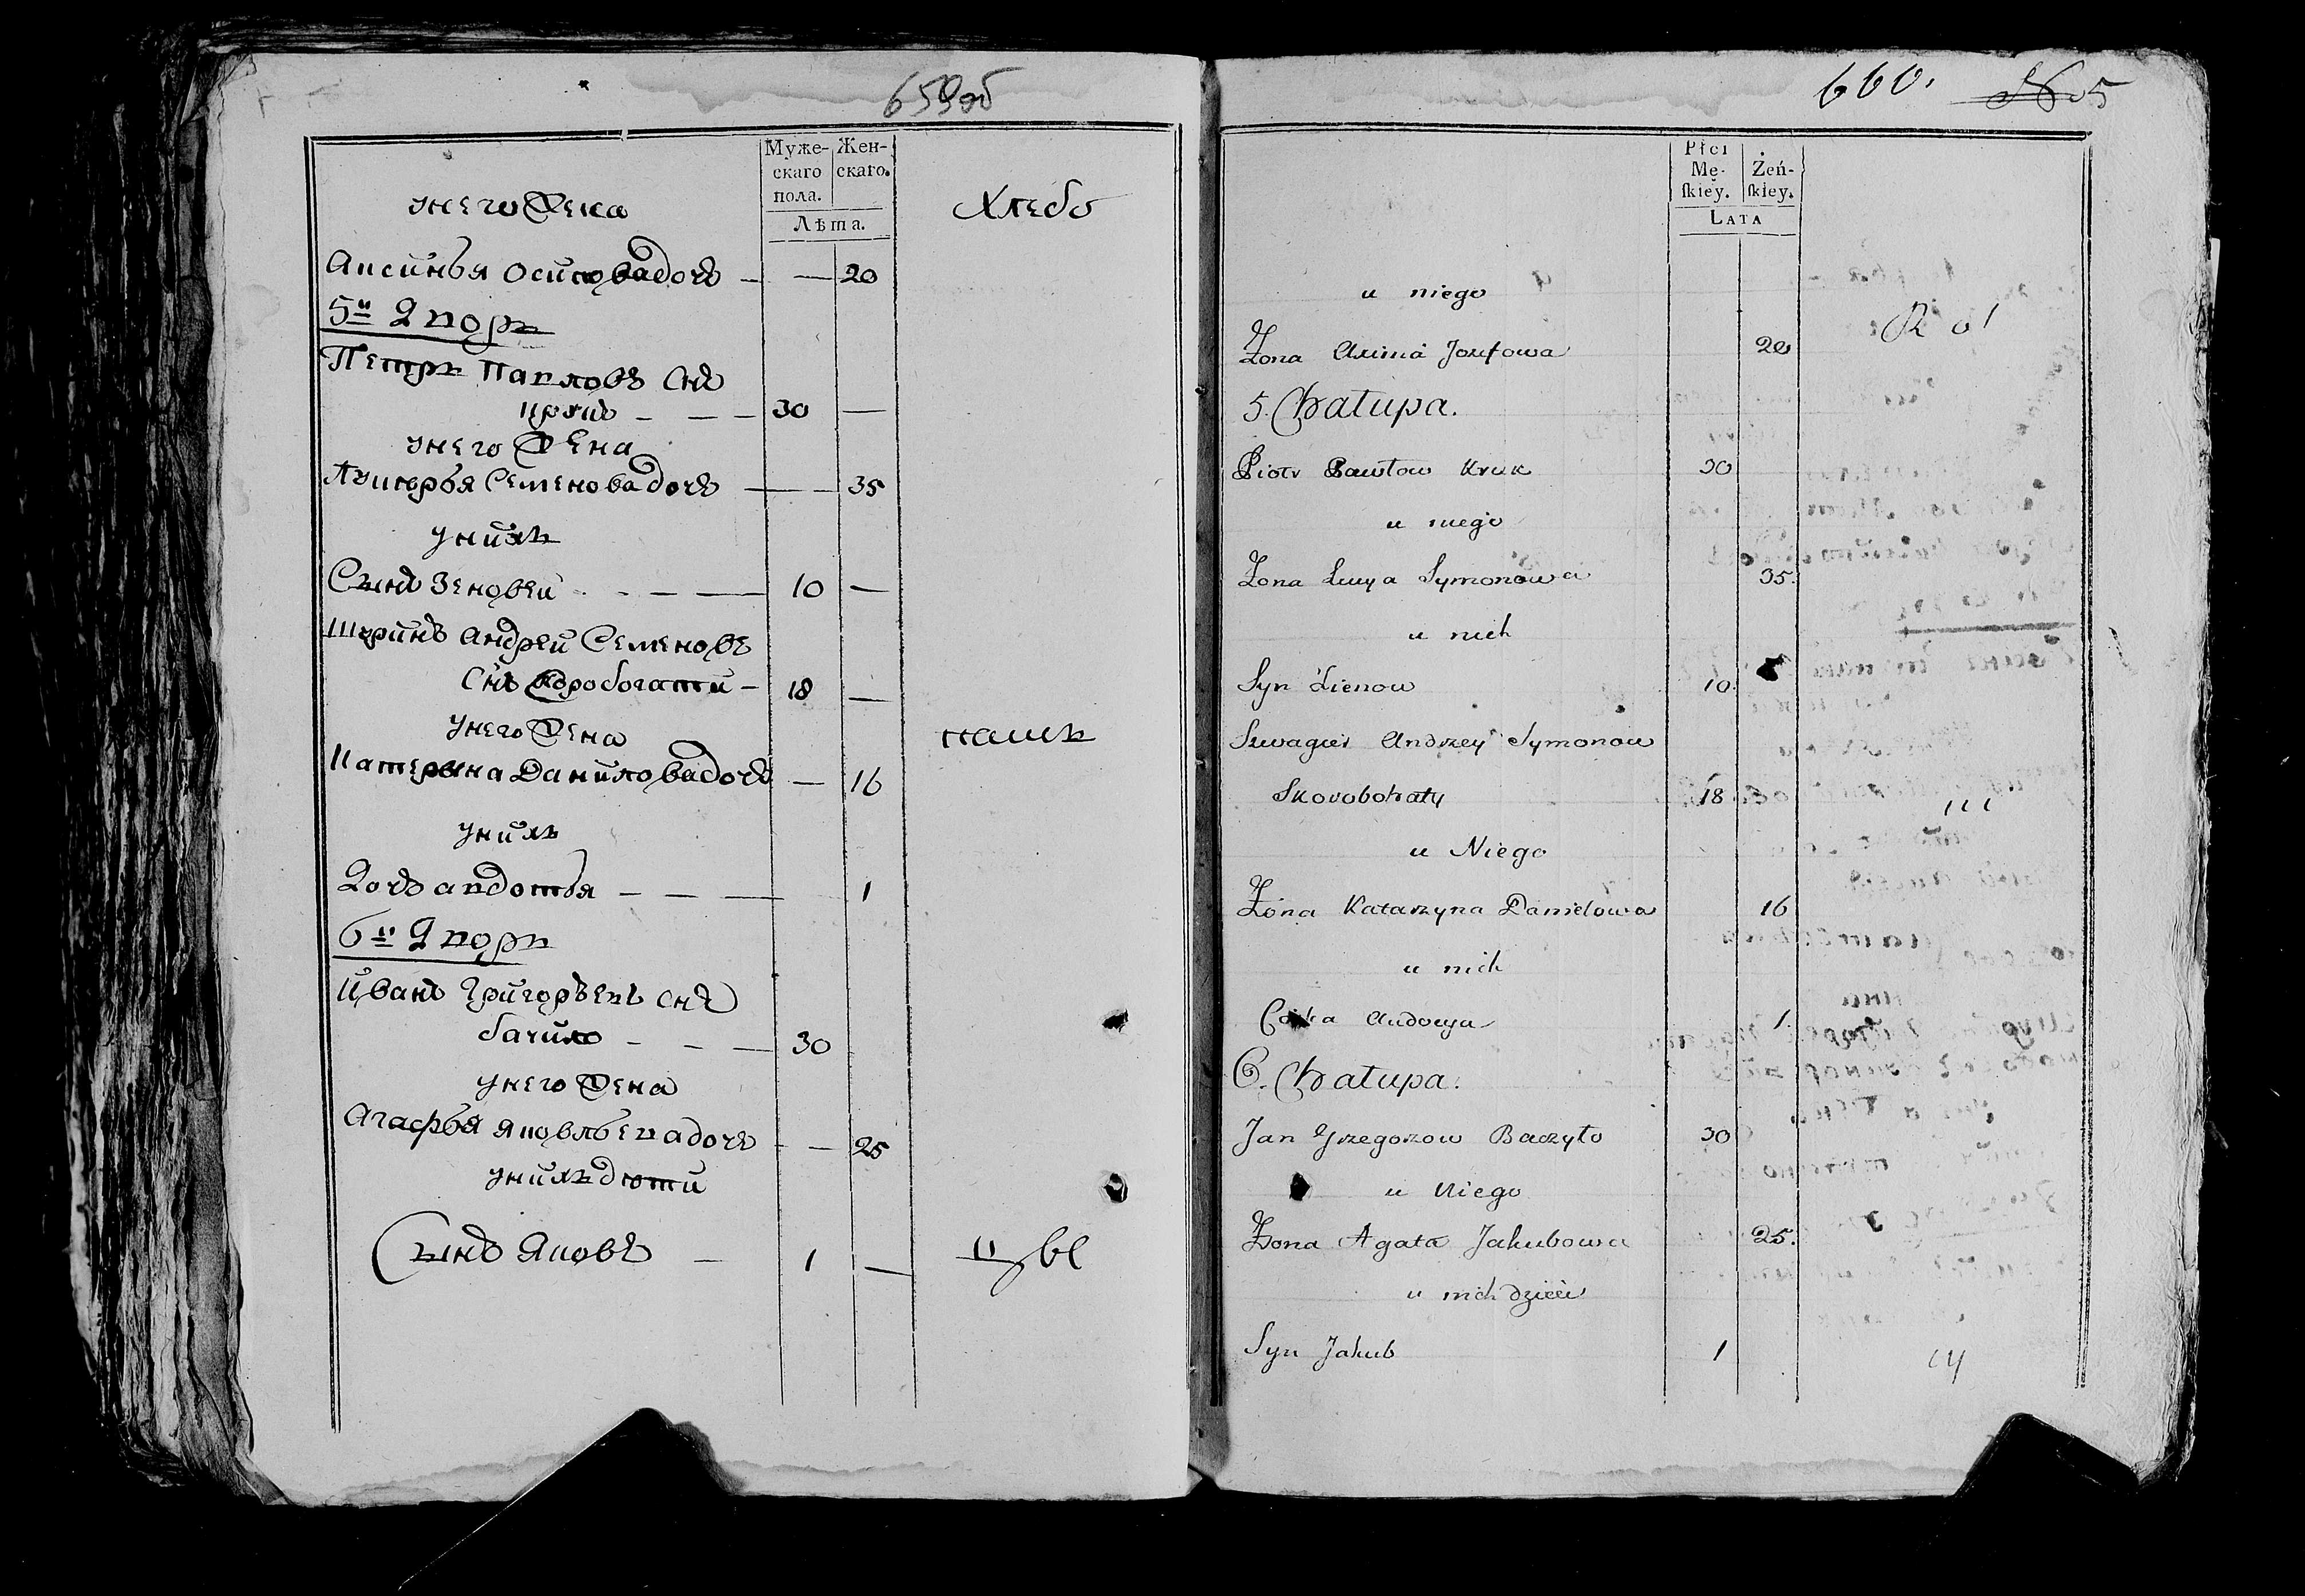 659об
Муже-
скаго
пола.
Жен-
скаго.
Лѣта.
унего Жена
Хлебо
Аксинья Осиповадочь — — 20
5й Дворъ
Петръ Павловъ Снъ
Крукъ — — — 30 —
унего Жена
Лукерья Семеновадочь — — 35
унихъ
Сынъ Зеновей — — — 10 —
Шуринъ Андрей Семеновъ
Снъ Скоробогати — 18 —
унего Жена
Катерына Даниловадочь — 16
пашъ
унихъ
Дочь авдотья — — — 1
6й Дворъ
Иванъ Григорьевъ снъ
бачило — — — 30
унего Жена
Агафья Яковльевадочь — — 25
унихъ дети
Сынъ Яковъ — 1 —
цы
660.
5
Płci
Mę-
ſkiey.
Żeń-
ſkiey.
LATA
u niego
Żona Axinia Jozefowa 20
R o l
5. Chałupa.
Piotr Pawłow Kruk 30
u niego
Żona Symonowa 35.
u nich
Syn Zienow 10
Szwagier Andrzey Symonow
Skorobohaty 18
u Niego
Żona Katarzyna Danielowa 16
u nich
Corka Audocya 1.
6. Chałupa.
Jan Grzegorzow Baczyło 30
u Niego
Żona Agata Jakubowa 25.
u nich dzieci
Syn Jakub 1